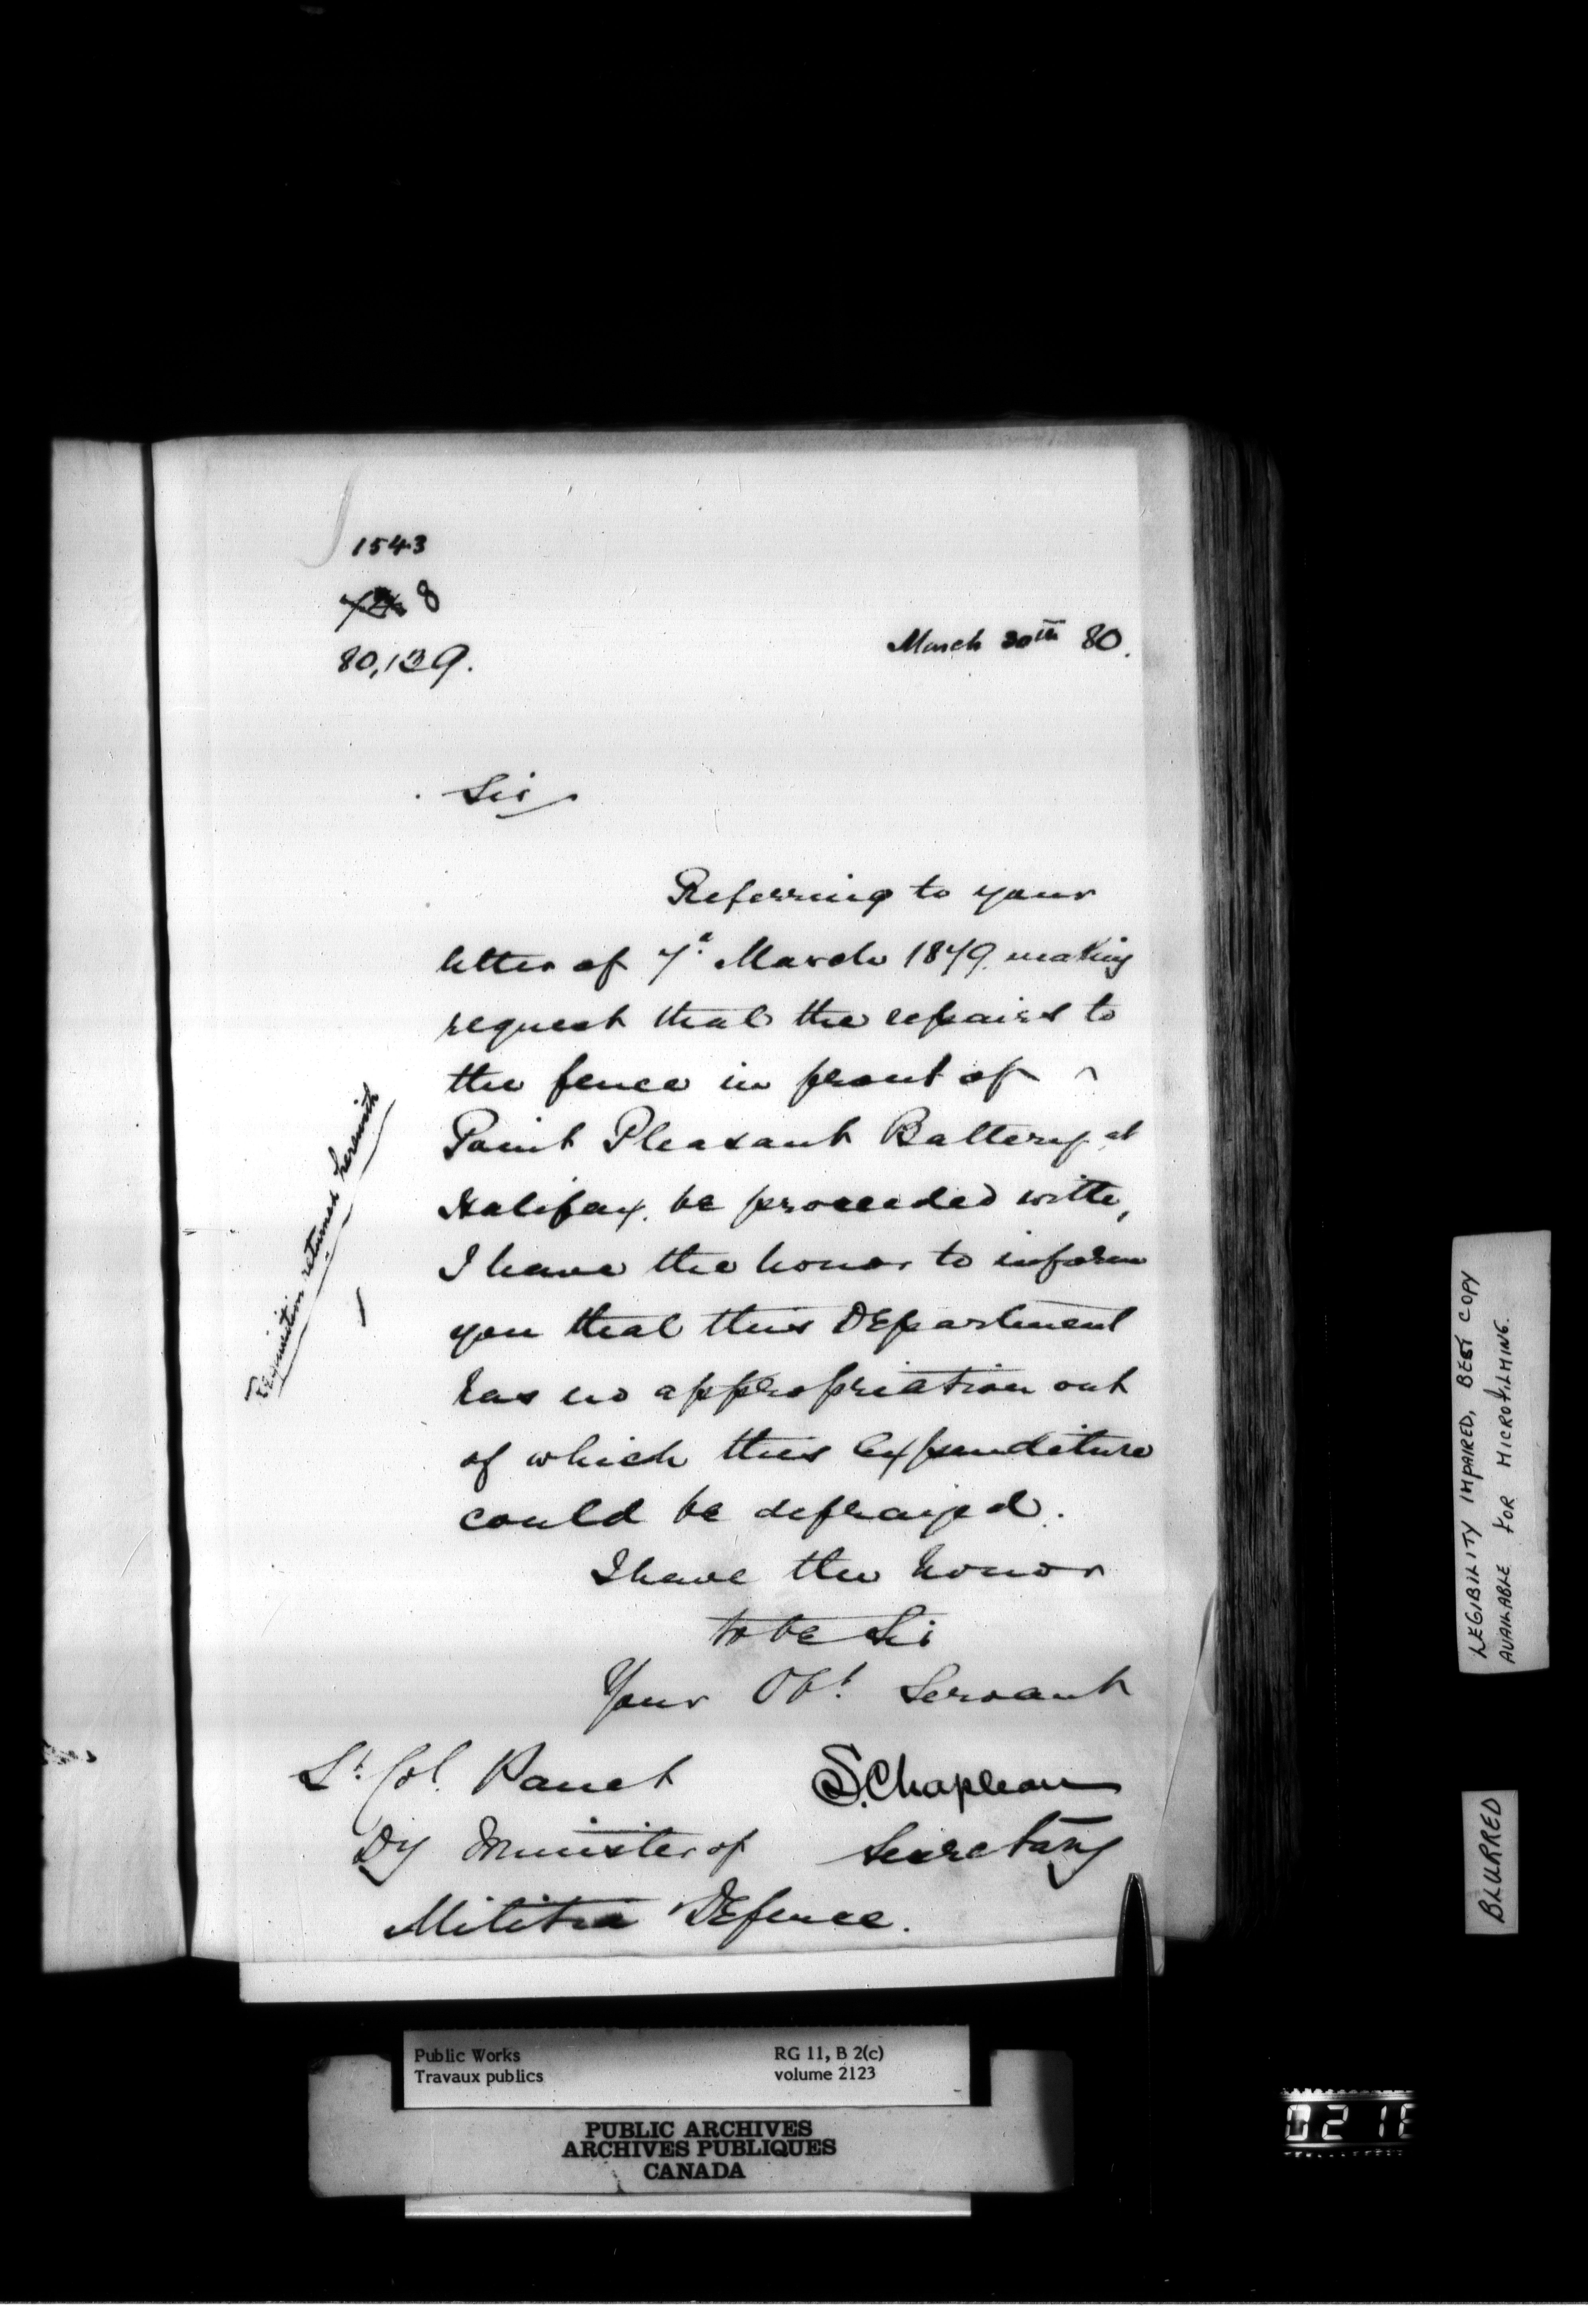 1543
8
80,139.
March 20th 80.
Sir,
Referring to your
letter of 7th March 1879, making
request that the repairs to
the fence in front of
Point Pleasant Battery at
Halifax, be proceeded with,
I have the honor to inform
you that this Department
has no appropriation out
of which this Expenditure
could be defrayed.
I have the honor
to be Sir
Your Obt. Servant
Lt. Col. Panet
S. Chapleau
Dy Minister of
Secretary
Militia Defence.
Requisition returned herewith
Public Works
Travaux publics
RG 11, B 2(c)
volume 2123
PUBLIC ARCHIVES
ARCHIVES PUBLIQUES
CANADA
LEGIBILITY IMPAIRED, BEST COPY
AVAILABLE FOR MICROFILMING.
BLURRED